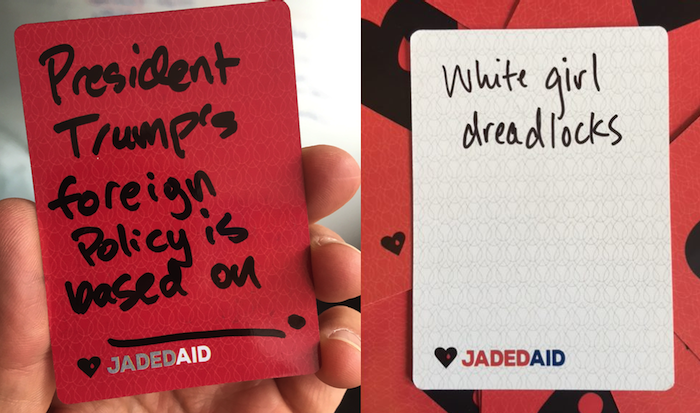 President
Trump's
foreign
Policy is
based on
________.
JADEDAID
White girl
dreadlocks
JADEDAID